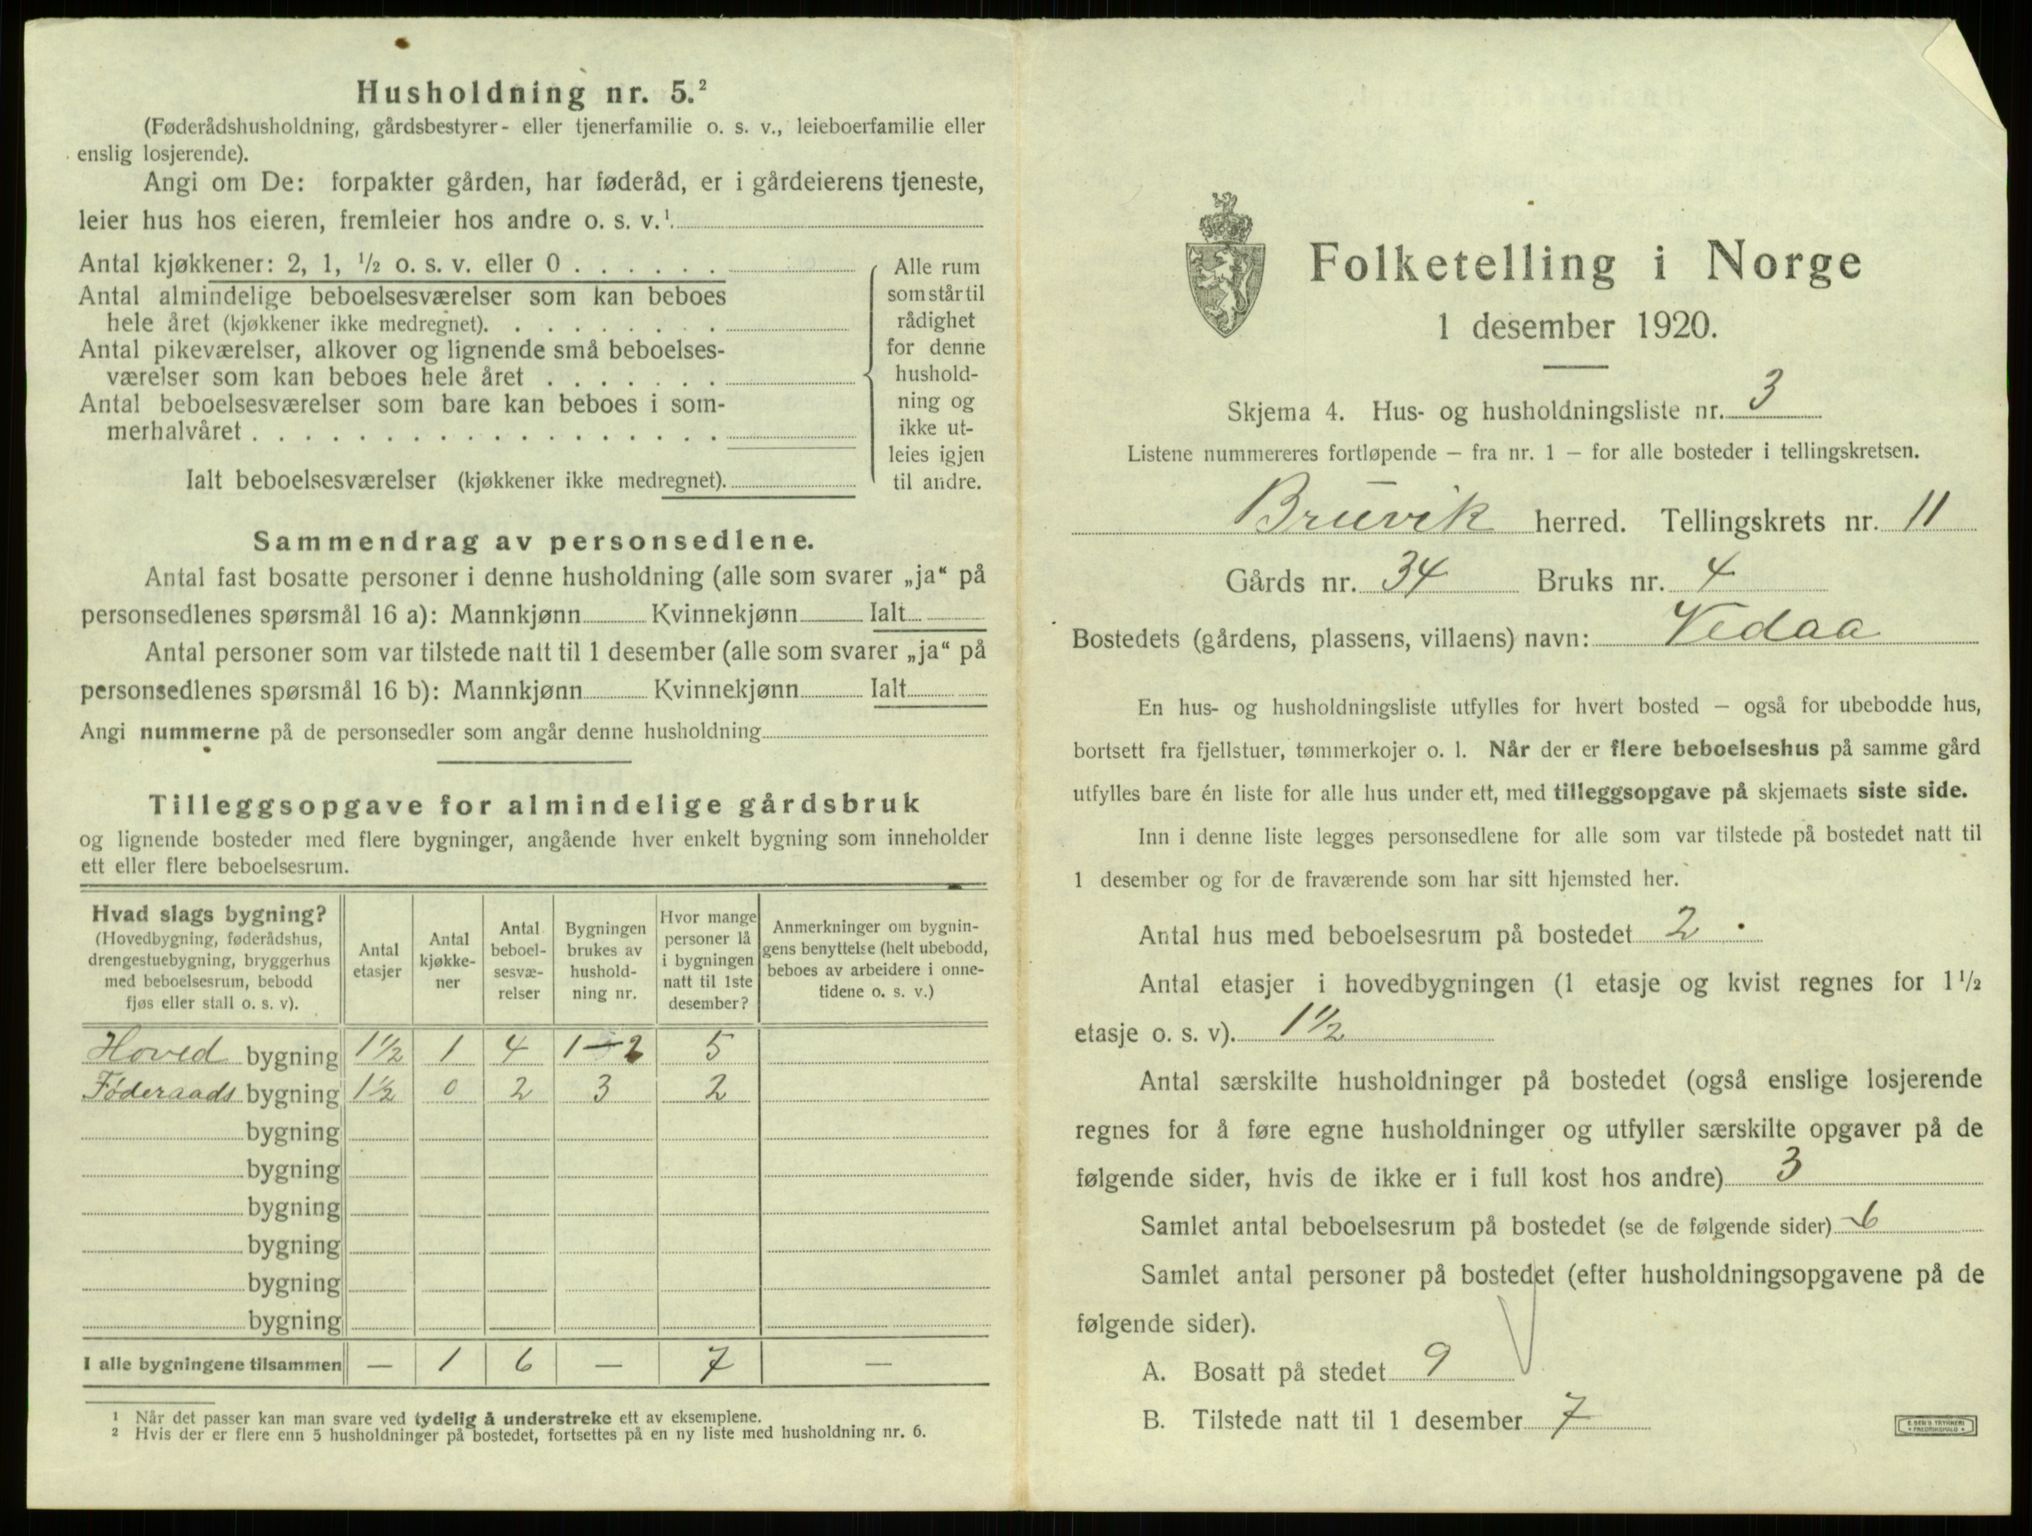 Husholdning nr. 5.²
(Føderådshusholdning, gårdsbestyrer- eller tjenerfamilie o. s. v., leieboerfamilie eller
enslig losjerende).
Angi om De: forpakter gården, har føderåd, er i gårdeierens tjeneste,
leier hus hos eieren, fremleier hos andre o. s. v.¹
Antal kjøkkener: 2, 1, ½ o. s. v. eller 0
Antal almindelige beboelsesværelser som kan beboes
hele året (kjøkkener ikke medregnet).
Antal pikeværelser, alkover og lignende små beboelses-
værelser som kan beboes hele året
Antal beboelsesværelser som bare kan beboes i som-
merhalvåret
Ialt beboelsesværelser (kjøkkener ikke medregnet).
Alle rum
som står til
rådighet
for denne
hushold-
ning og
ikke ut-
leies igjen
til andre.
Sammendrag av personsedlene.
Antal fast bosatte personer i denne husholdning (alle som svarer „ja“ på
personsedlenes spørsmål 16 a): Mannkjønn Kvinnekjønn Ialt
Antal personer som var tilstede natt til 1 desember (alle som svarer „ja“ på
personsedlenes spørsmål 16 b): Mannkjønn Kvinnekjønn Ialt
Angi nummerne på de personsedler som angår denne husholdning
Tilleggsopgave for almindelige gårdsbruk
og lignende bosteder med flere bygninger, angående hver enkelt bygning som inneholder
ett eller flere beboelsesrum.
Hvad slags bygning?
(Hovedbygning, føderådshus,
drengestuebygning, bryggerhus
med beboelsesrum, bebodd
fjøs eller stall o. s. v).
Antal
etasjer
Antal
kjøkke-
ner
Antal
beboel-
sesvæ-
relser
Bygningen
brukes av
hushold-
ning nr.
Hvor mange
personer lå
i bygningen
natt til 1ste
desember?
Anmerkninger om bygnin-
gens benyttelse (helt ubebodd,
beboes av arbeidere i onne-
tidene o. s. v.)
Hoved bygning 1½ 1 4 1-2 5
Føderaads bygning 1½ 0 2 3 2
bygning
bygning
bygning
bygning
bygning
bygning
I alle bygningene tilsammen — 1 6 — 7 —
¹ Når det passer kan man svare ved tydelig å understreke ett av eksemplene.
² Hvis der er flere enn 5 husholdninger på bostedet, fortsettes på en ny liste med husholdning nr. 6.
Folketelling i Norge
1 desember 1920.
Skjema 4. Hus- og husholdningsliste nr. 3
Listene nummereres fortløpende – fra nr. 1 – for alle bosteder i tellingskretsen.
Bruvik herred. Tellingskrets nr. 11
Gårds nr. 34 Bruks nr. 4
Bostedets (gårdens, plassens, villaens) navn: Vedaa
En hus- og husholdningsliste utfylles for hvert bosted – også for ubebodde hus,
bortsett fra fjellstuer, tømmerkojer o. l. Når der er flere beboelseshus på samme gård
utfylles bare én liste for alle hus under ett, med tilleggsopgave på skjemaets siste side.
Inn i denne liste legges personsedlene for alle som var tilstede på bostedet natt til
1 desember og for de fraværende som har sitt hjemsted her.
Antal hus med beboelsesrum på bostedet 2
Antal etasjer i hovedbygningen (1 etasje og kvist regnes for 1½
etasje o. s. v). 1½
Antal særskilte husholdninger på bostedet (også enslige losjerende
regnes for å føre egne husholdninger og utfyller særskilte opgaver på de
følgende sider, hvis de ikke er i full kost hos andre) 3
Samlet antal beboelsesrum på bostedet (se de følgende sider) 6
Samlet antal personer på bostedet (efter husholdningsopgavene på de
følgende sider).
A. Bosatt på stedet 9
B. Tilstede natt til 1 desember 7